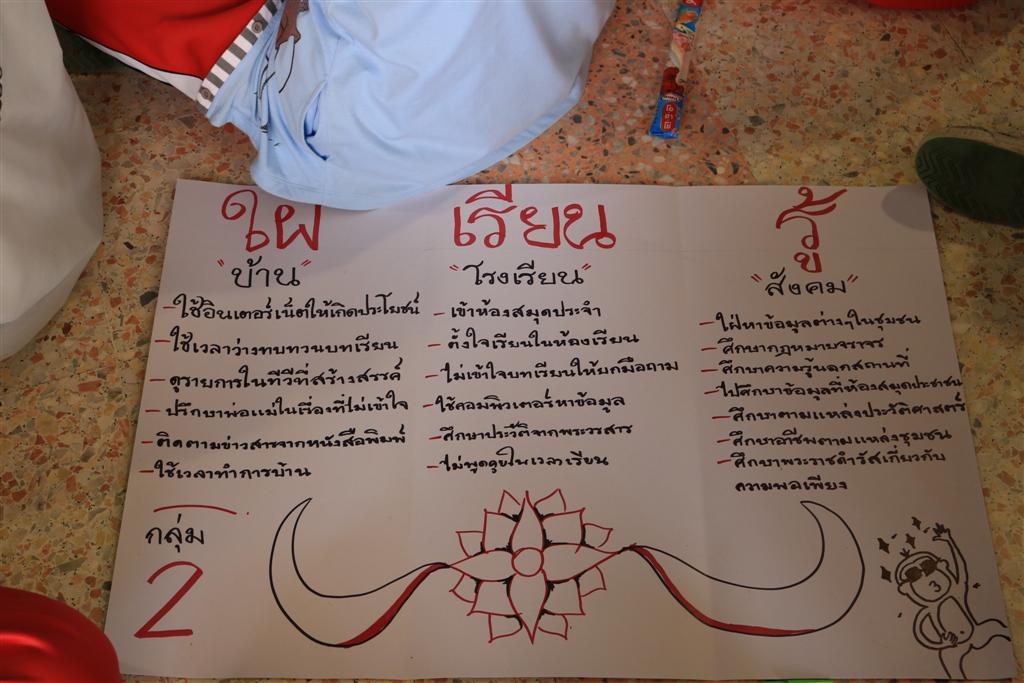 ใฝ่ เรียน รู้
"บ้าน"
-ใช้อินเตอร์เน็ตให้เกิดประโยชน์
-ใช้เวลาว่างทบทวนบทเรียน
-ดูรายการในทีวีที่สร้างสรรค์
-ปรึกษาพ่อแม่ในเรื่องที่ไม่เข้าใจ
-ติดตามข่าวสารจากหนังสือพิมพ์
-ใช้เวลาทำการบ้าน
"โรงเรียน"
- เข้าห้องสมุดประจำ
- ตั้งใจเรียนในห้องเรียน
-ไม่เข้าใจบทเรียนให้ยกมือถาม
-ใช้คอมพิวเตอร์หาข้อมูล
-ศึกษาประวัติจากพระวรสาร
-ไม่พูดคุยในเวลาเรียน
"สังคม"
-ใฝ่หาข้อมูลต่างๆในชุมชน
-ศึกษากฎหมายจราจร
-ศึกษาความรู้นอกสถานที่
-ไปศึกษาข้อมูลที่ห้องสมุดประชาชน
-ศึกษาตามแหล่งประวัติศาสตร์
-ศึกษาอาชีพตามแหล่งชุมชน
-ศึกษาพระราชดำรัสเกี่ยวกับ
ความพอเพียง
กลุ่ม
2